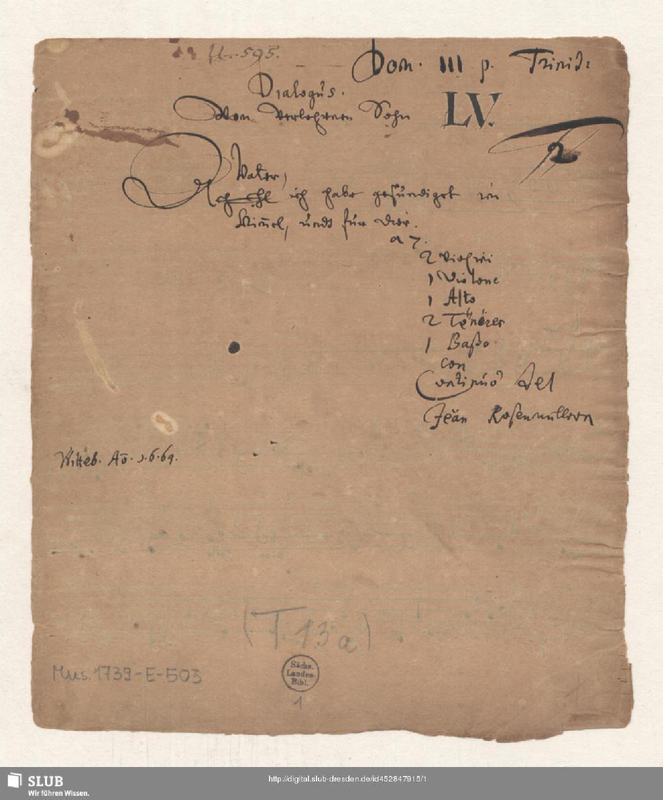 N. 595.
Dom. III p. Trinit:
Dialogus.
Von Verlohrnen Sohn
LV.
2
Vater,
Ach ich habe gesündiget im
Himel, undt für dir.
a 7.
2 Violini
1 Violone
1 Alto
2 Tenores
1 Basso
con
Continuo del
Jean Rosenmüllern
Witteb. Ao. 1669.
(T. 13a)
Mus. 1739-E-503
Sächs.
Landes-
Bibl.
1
SLUB
Wir führen Wissen.
http://digital.slub-dresden.de/id452847915/1